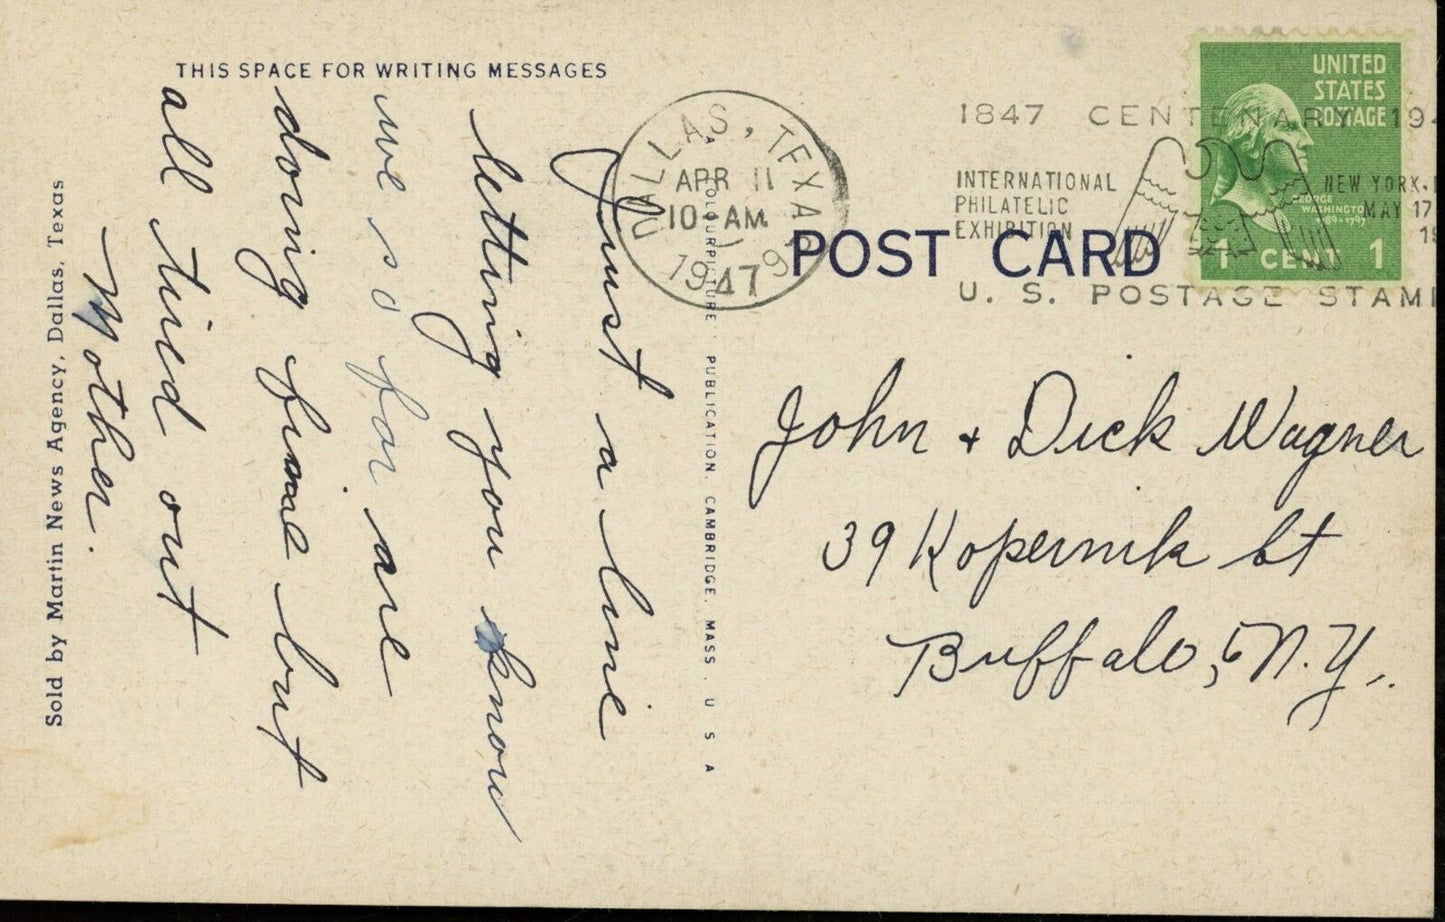 THIS SPACE FOR WRITING MESSAGES
Just a line
letting you know
we so far are
doing fine but
all tired out
Mother.
Sold by Martin News Agency, Dallas, Texas
A COLOURPICTURE PUBLICATION, CAMBRIDGE, MASS. U S A
DALLAS, TEXAS
APR 11
10-AM
1947
POST CARD
1847 CENTENARY 194
INTERNATIONAL
PHILATELIC
EXHIBITION
NEW YORK,
MAY 17
19
U. S. POSTAGE STAM
UNITED
STATES
POSTAGE
GEORGE
WASHINGTON
1789-1797
1 CENT 1
John + Dick Wagner
39 Kopernik St
Buffalo, 6 N.Y.